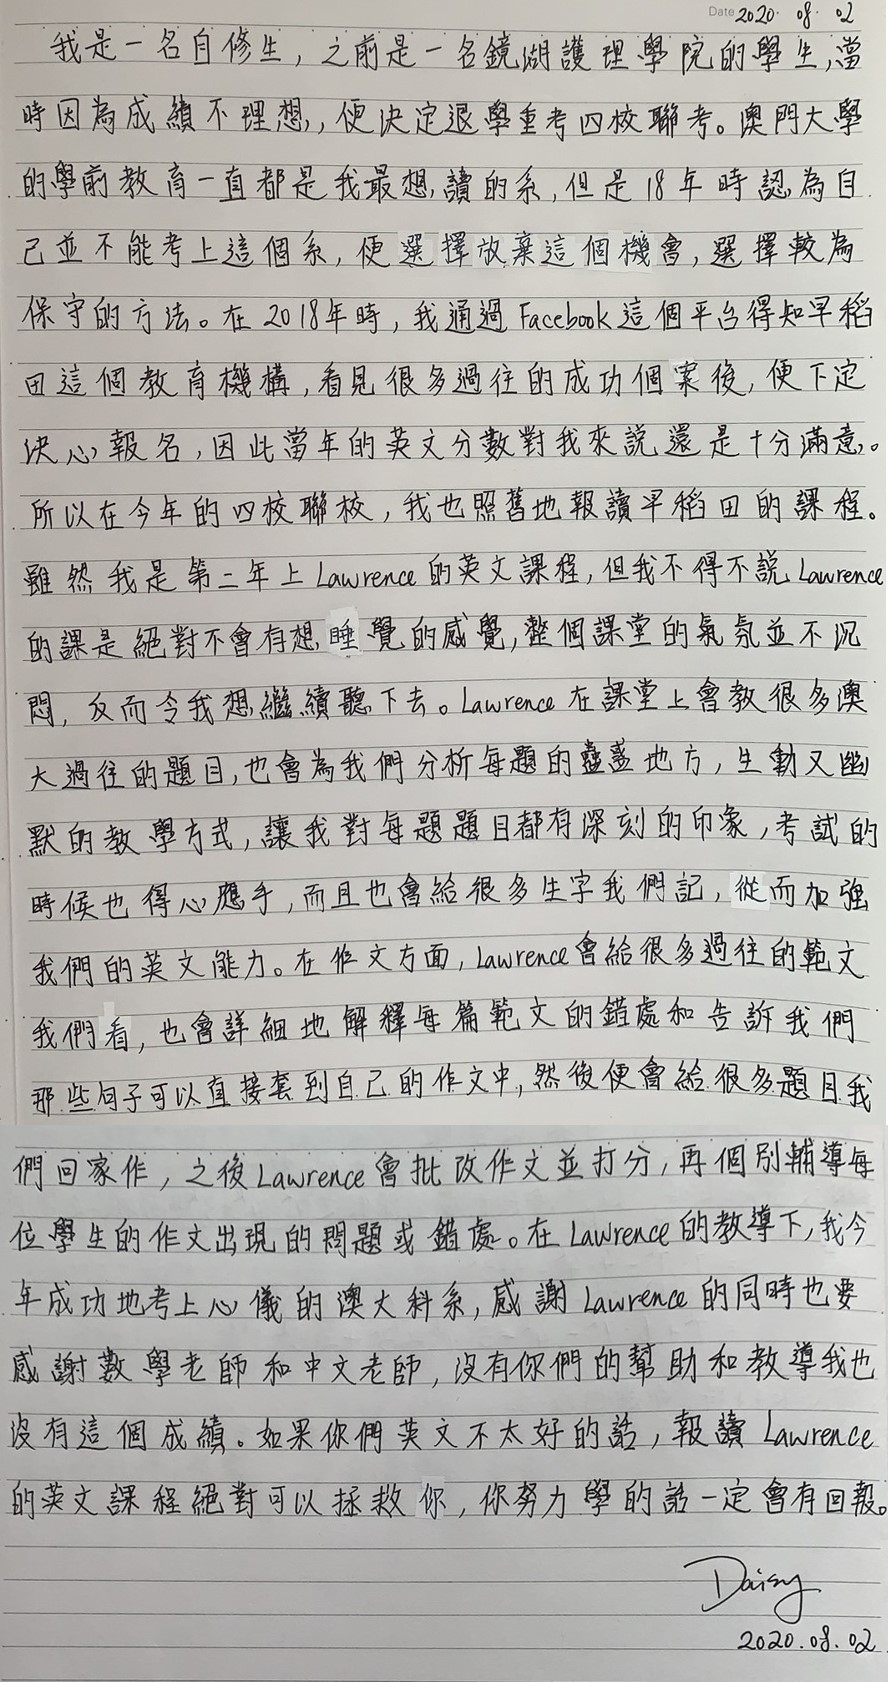 Date 2020. 08. 02
我是一名自修生，之前是一名鏡湖護理學院的學生，當
時因為成績不理想，便決定退學重考四校聯考。澳門大學
的學前教育一直都是我最想讀的系，但是18年時認為自
己並不能考上這個系，便選擇放棄這個機會，選擇較為
保守的方法。在2018年時，我通過Facebook這個平台得知早稻
田這個教育機構，看見很多過往的成功個案後，便下定
決心報名，因此當年的英文分數對我來說還是十分滿意。
所以在今年的四校聯校，我也照舊地報讀早稻田的課程。
雖然我是第二年上Lawrence的英文課程，但我不得不說Lawrence
的課是絕對不會有想睡覺的感覺，整個課堂的氣氛並不沉
悶，反而令我想繼續聽下去。Lawrence在課堂上會教很多澳
大過往的題目，也會為我們分析每題的蠱惑地方，生動又幽
默的教學方式，讓我對每題題目都有深刻的印象，考試的
時候也得心應手，而且也會給很多生字我們記，從而加強
我們的英文能力。在作文方面，Lawrence會給很多過往的範文
我們看，也會詳細地解釋每篇範文的錯處和告訴我們
那些句子可以直接套到自己的作文中，然後便會給很多題目我
們回家作，之後Lawrence會批改作文並打分，再個別輔導每
位學生的作文出現的問題或錯處。在Lawrence的教導下，我今
年成功地考上心儀的澳大科系，感謝Lawrence的同時也要
感謝數學老師和中文老師，沒有你們的幫助和教導我也
沒有這個成績。如果你們英文不太好的話，報讀Lawrence
的英文課程絕對可以拯救你，你努力學的話一定會有回報。
Daisy
2020.08.02